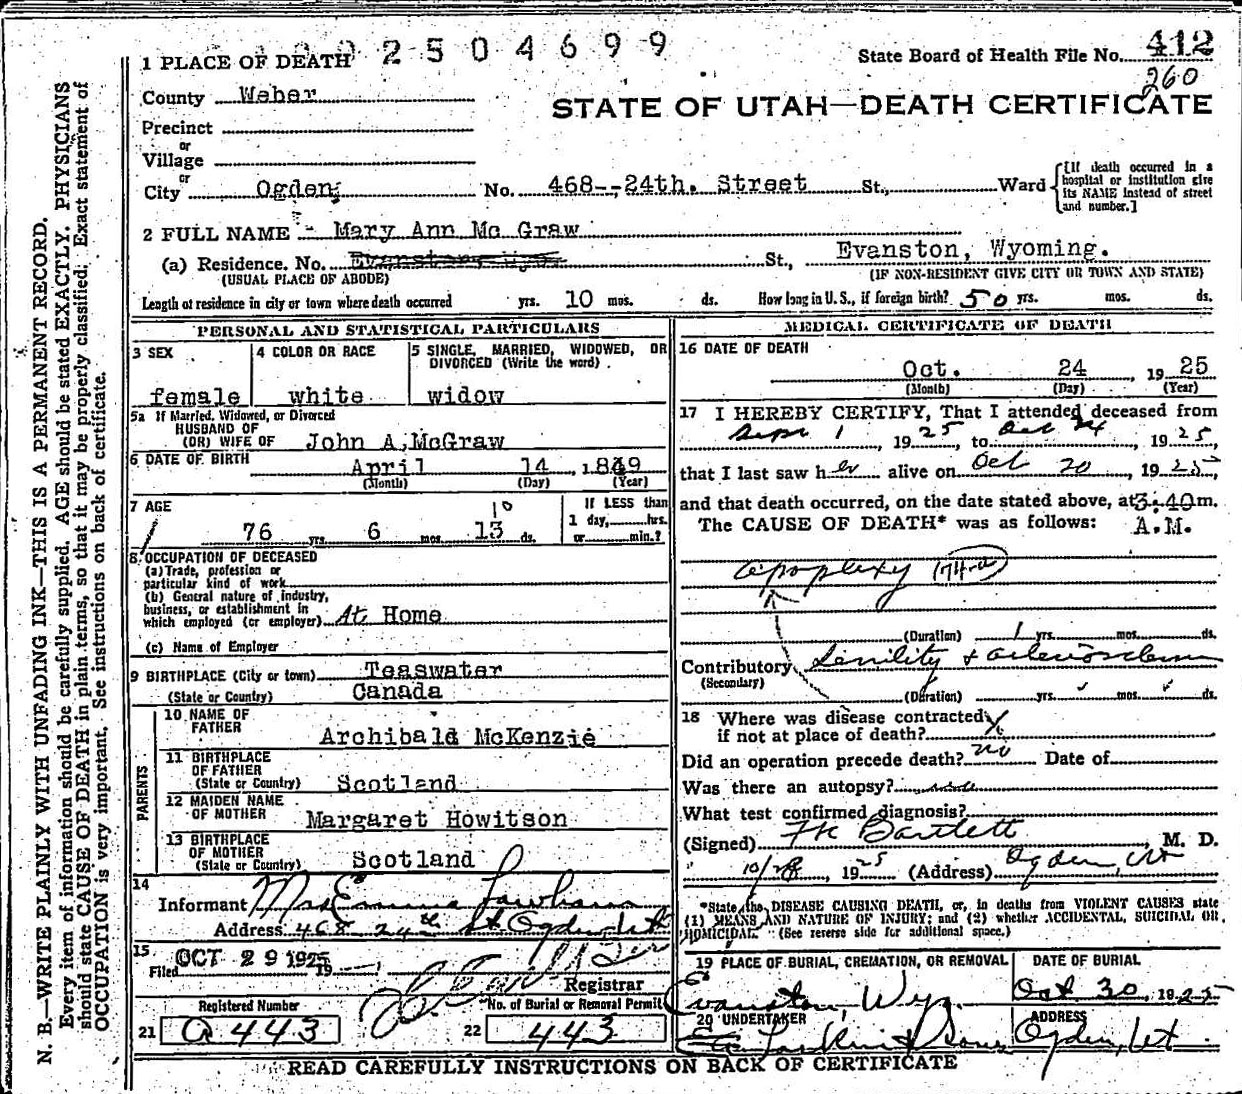 2504699
State Board of Health File No. 412
260
1 PLACE OF DEATH
County Weber
STATE OF UTAH—DEATH CERTIFICATE
Precinct
or
Village
or
City Ogden, No. 468--24th. Street St., Ward {[If death occurred in a hospital or institution give its NAME instead of street and number.]
2 FULL NAME - Mary Ann Mc Graw
(a) Residence. No. Evanston, Wyo. St., Evanston, Wyoming.
(USUAL PLACE OF ABODE) (IF NON-RESIDENT GIVE CITY OR TOWN AND STATE)
Length of residence in city or town where death occurred yrs. 10 mos. ds. How long in U. S., if foreign birth? 50 yrs. mos. ds.
PERSONAL AND STATISTICAL PARTICULARS
3 SEX
female
4 COLOR OR RACE
white
5 SINGLE, MARRIED, WIDOWED, OR DIVORCED (Write the word)
widow
5a If Married, Widowed, or Divorced
HUSBAND OF
(OR) WIFE OF John A. McGraw
6 DATE OF BIRTH April 14, 1849
(Month) (Day) (Year)
7 AGE
10
76 yrs. 6 mos. 13 ds.
If LESS than
1 day, hrs.
or min.?
8 OCCUPATION OF DECEASED
(a) Trade, profession or
particular kind of work
(b) General nature of industry,
business, or establishment in
which employed (or employer) At Home
(c) Name of Employer
9 BIRTHPLACE (City or town) Teaswater
(State or Country) Canada
PARENTS
10 NAME OF
FATHER Archibald McKenzie
11 BIRTHPLACE
OF FATHER
(State or Country) Scotland
12 MAIDEN NAME
OF MOTHER Margaret Howitson
13 BIRTHPLACE
OF MOTHER
(State or Country) Scotland
14
Informant Mrs Emma
Address 468 24th St Ogden, Ut
15
Filed OCT 29 1925 19
Registrar
Registered Number
21 a 443
No. of Burial or Removal Permit
22 443
MEDICAL CERTIFICATE OF DEATH
16 DATE OF DEATH
Oct. 24, 1925
(Month) (Day) (Year)
17 I HEREBY CERTIFY, That I attended deceased from
Sept 1, 1925 to Oct 24, 1925
that I last saw her alive on Oct 20, 1925,
and that death occurred, on the date stated above, at 3:40 m.
The CAUSE OF DEATH* was as follows: A.M.
apoplexy
(Duration) 1 yrs. mos. ds.
Contributory Senility & arteriosclerosis
(Secondary)
(Duration) yrs. mos. ds.
18 Where was disease contracted
if not at place of death?
Did an operation precede death? no Date of
Was there an autopsy?
What test confirmed diagnosis?
(Signed) FK Bartlett, M. D.
10/28, 1925 (Address) Ogden, Ut
*State the DISEASE CAUSING DEATH, or, in deaths from VIOLENT CAUSES state
(1) MEANS AND NATURE OF INJURY; and (2) whether ACCIDENTAL, SUICIDAL OR
HOMICIDAL. (See reverse side for additional space.)
19 PLACE OF BURIAL, CREMATION, OR REMOVAL
Evanston, Wyo.
DATE OF BURIAL
Oct 30, 1925
20 UNDERTAKER
Larkin & Sons
ADDRESS
Ogden, Ut
READ CAREFULLY INSTRUCTIONS ON BACK OF CERTIFICATE
N. B.—WRITE PLAINLY WITH UNFADING INK—THIS IS A PERMANENT RECORD.
Every item of information should be carefully supplied. AGE should be stated EXACTLY. PHYSICIANS
should state CAUSE OF DEATH in plain terms, so that it may be properly classified. Exact statement of
OCCUPATION is very important. See instructions on back of certificate.